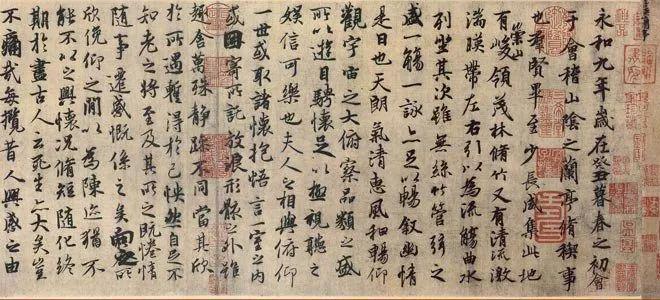 永和九年歲在癸丑暮春之初會
于會稽山陰之蘭亭脩稧事
也羣賢畢至少長咸集此地
有崇山峻領茂林脩竹又有清流激
湍暎帶左右引以為流觴曲水
列坐其次雖無絲竹管弦之
盛一觴一詠亦足以暢叙幽情
是日也天朗氣清惠風和暢仰
觀宇宙之大俯察品類之盛
所以遊目騁懷足以極視聽之
娛信可樂也夫人之相與俯仰
一世或取諸懷抱悟言一室之內
或因寄所託放浪形骸之外雖
趣舍萬殊靜躁不同當其欣
於所遇暫得於己怏然自足不
知老之將至及其所之既惓情
隨事遷感慨係之矣向之所
欣俛仰之間以為陳迹猶不
能不以之興懷況脩短隨化終
期於盡古人云死生亦大矣豈
不痛哉每攬昔人興感之由